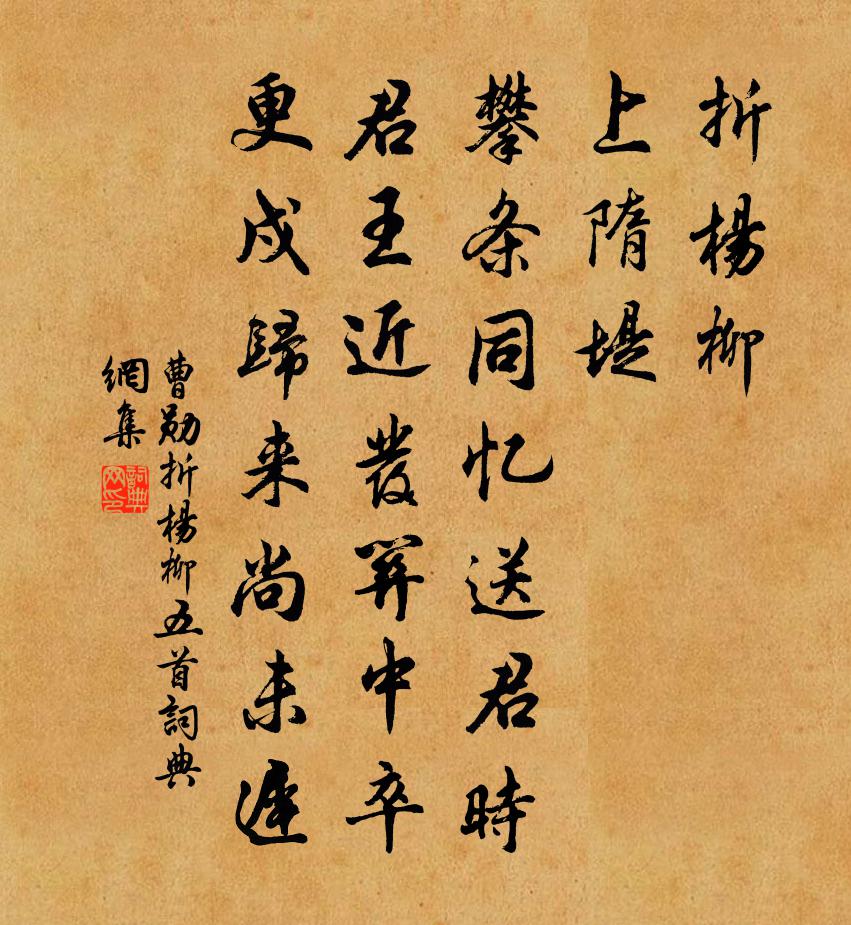 折楊柳
上隋堤
攀条同忆送君時
君王近發關中卒
更戍歸来尚未遲
曹勋折楊柳五首詞典
網集
詞典
网印